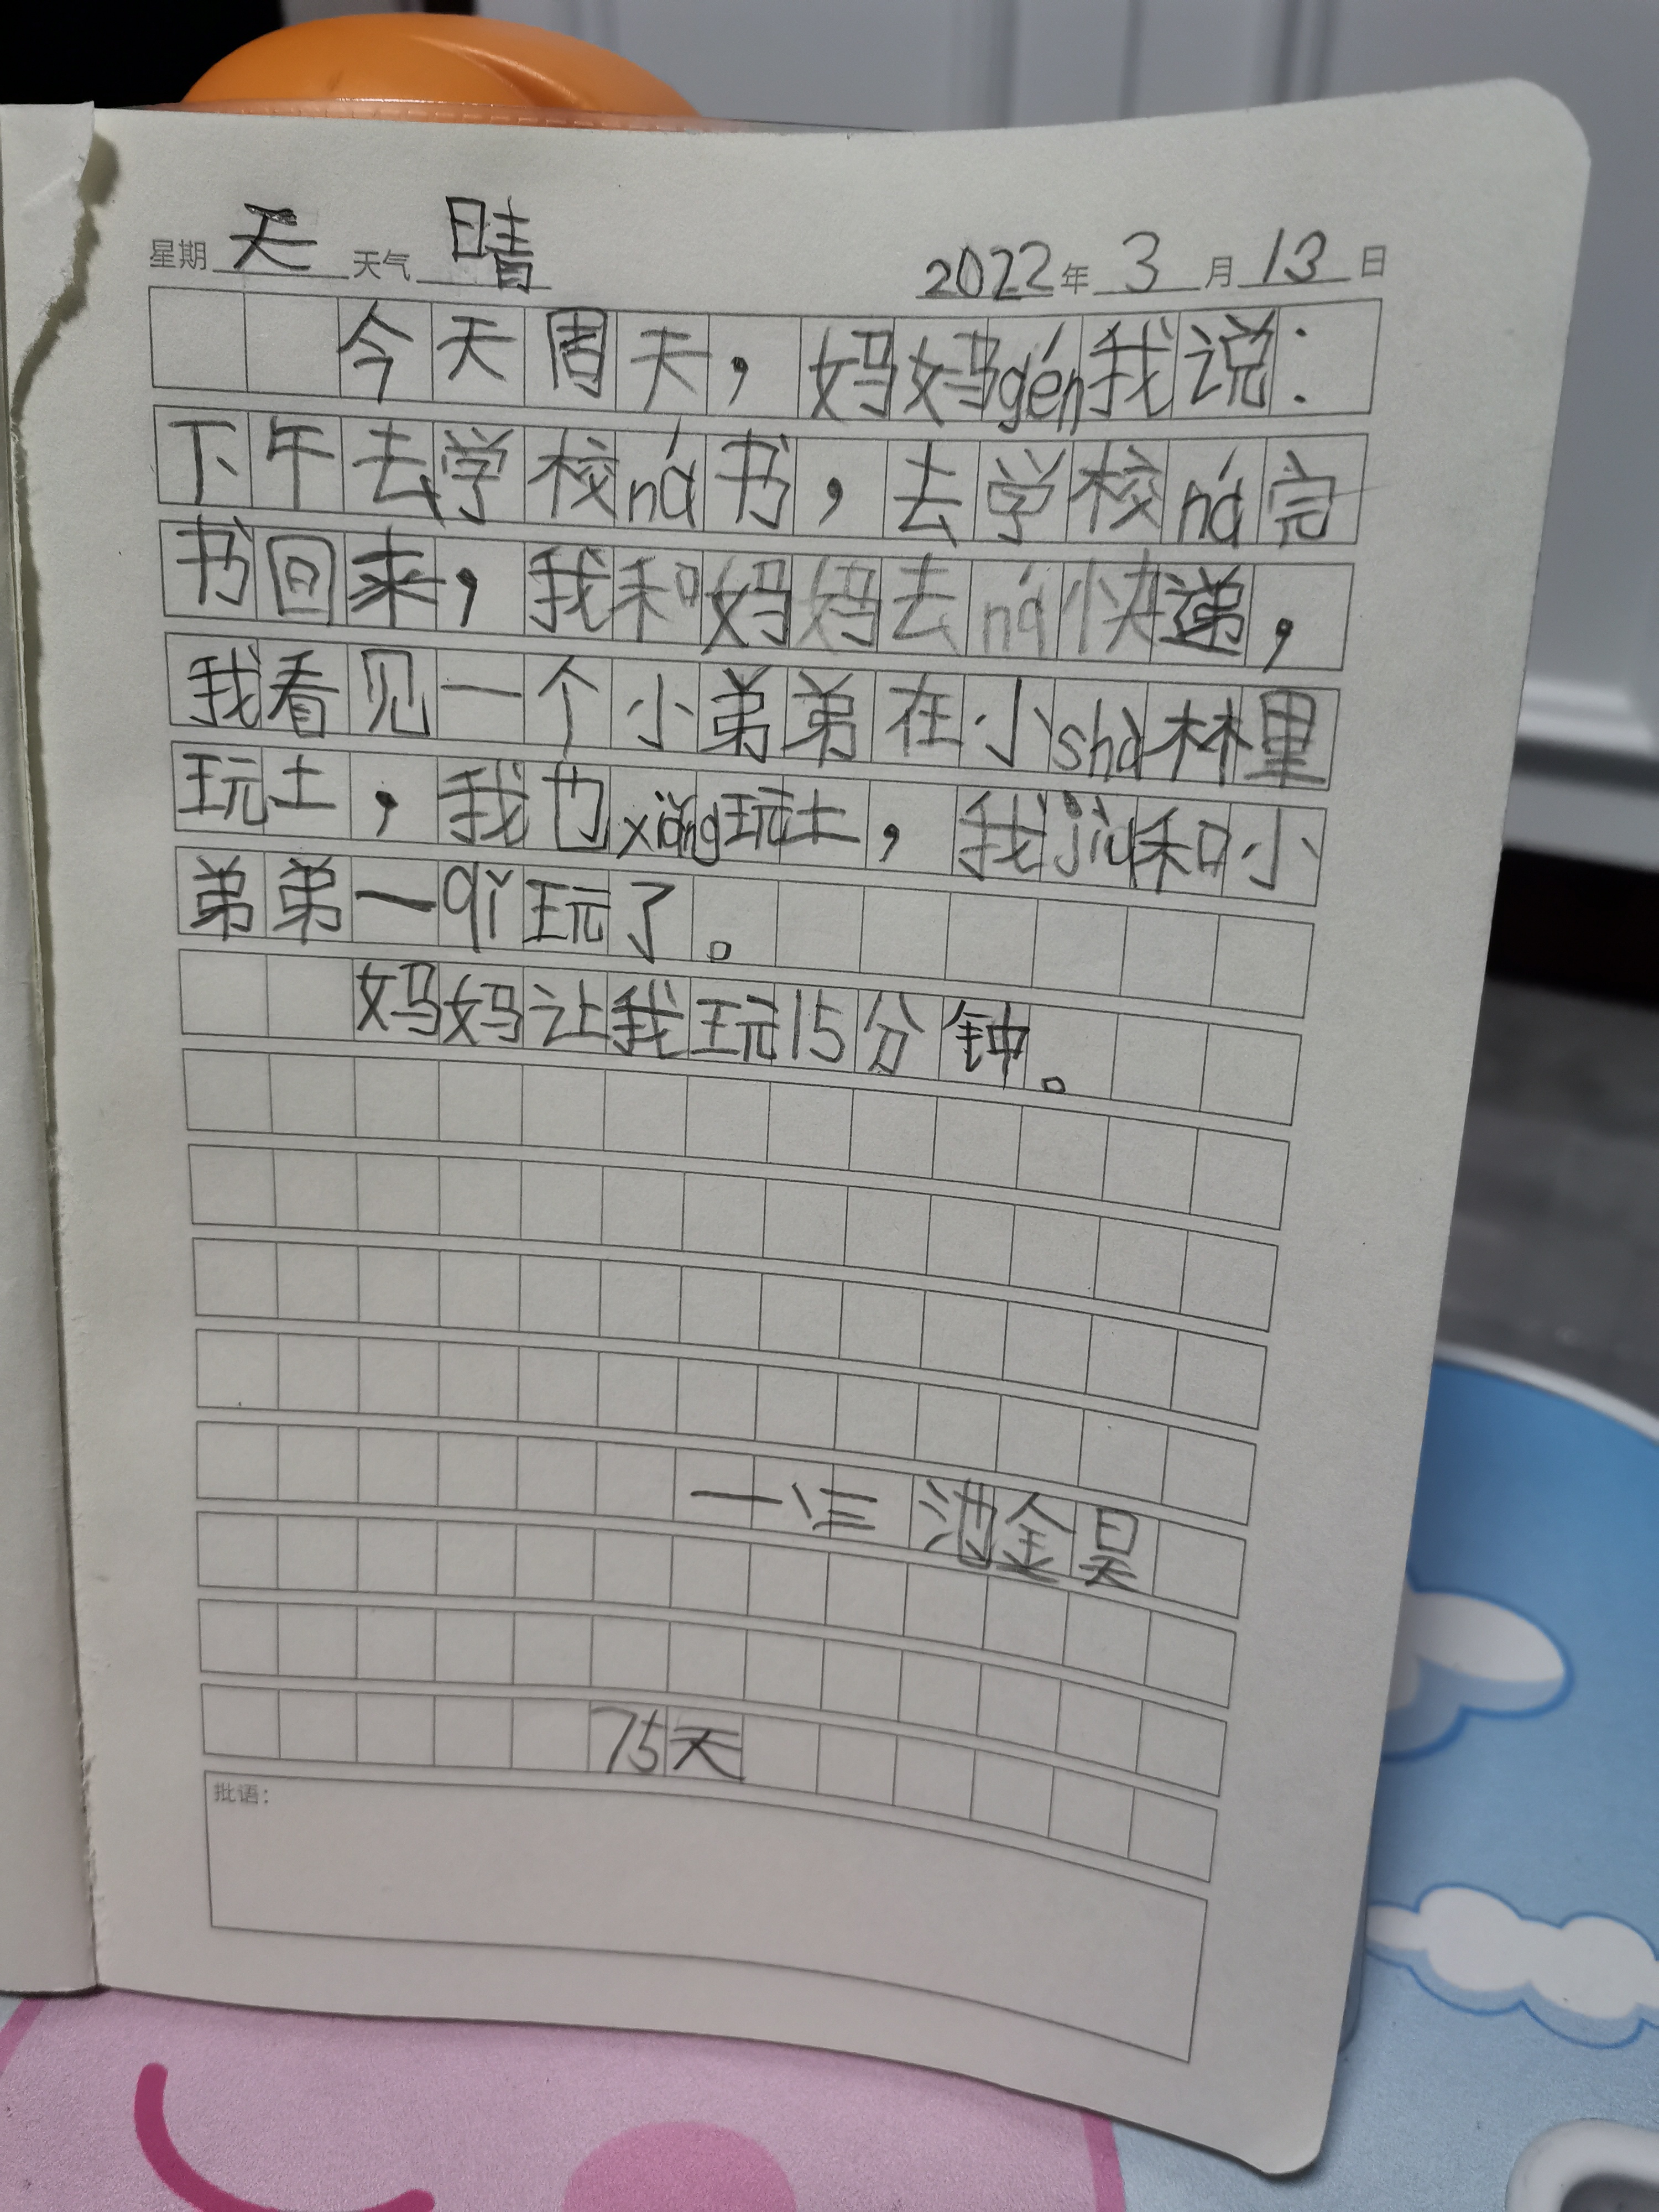 星期天 天气 晴 2022年3月13日
今天周天，妈妈gén我说：
下午去学校ná书，去学校ná完
书回来，我和妈妈去ná快递，
我看见一个小弟弟在小shà林里
玩土，我也xiǎng玩土，我jiù和小
弟弟一qǐ玩了。
妈妈让我玩15分钟。
池金昊
75天
批语：